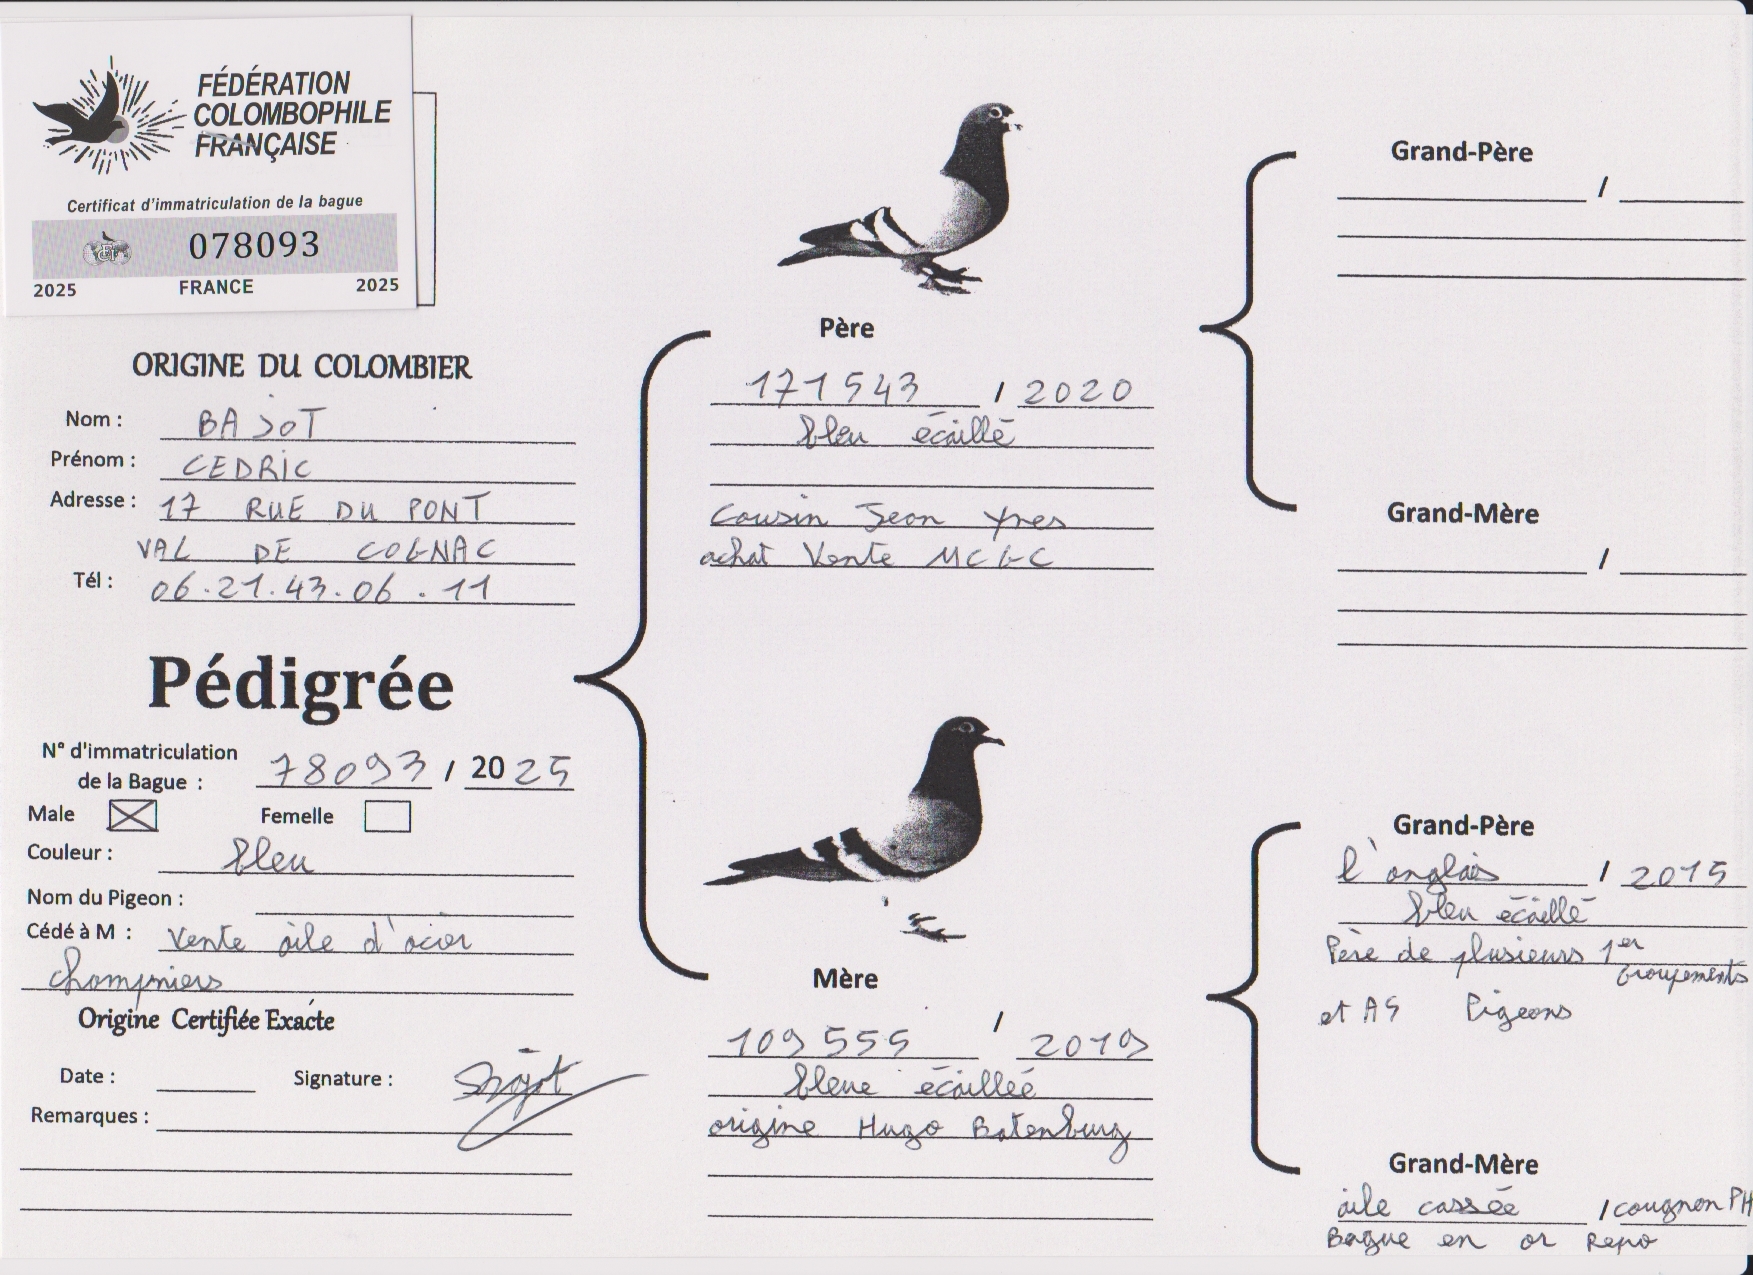 FÉDÉRATION
COLOMBOPHILE
FRANÇAISE
Certificat d'immatriculation de la bague
078093
2025 FRANCE 2025
ORIGINE DU COLOMBIER
Nom : BAJOT
Prénom : CEDRIC
Adresse : 17 RUE DU PONT
VAL DE COGNAC
Tél : 06.21.43.06.11
Pédigrée
N° d'immatriculation
de la Bague : 78093 / 2025
Male Femelle
Couleur : bleu
Nom du Pigeon :
Cédé à M : Vente aile d'acier
Champniers
Origine Certifiée Exacte
Date : Signature :
Remarques :
Père
171543 / 2020
bleu écaillé
Cousin Jean Yves
achat Vente MCGC
Mère
109555 / 2019
bleue écaillée
origine Hugo Batenburg
Grand-Père
/
Grand-Mère
/
Grand-Père
l'anglais / 2015
bleu écaillé
Père de plusieurs 1er
Groupements
et AS Pigeons
Grand-Mère
aile cassée / cougnon PH
Bague en or Repo